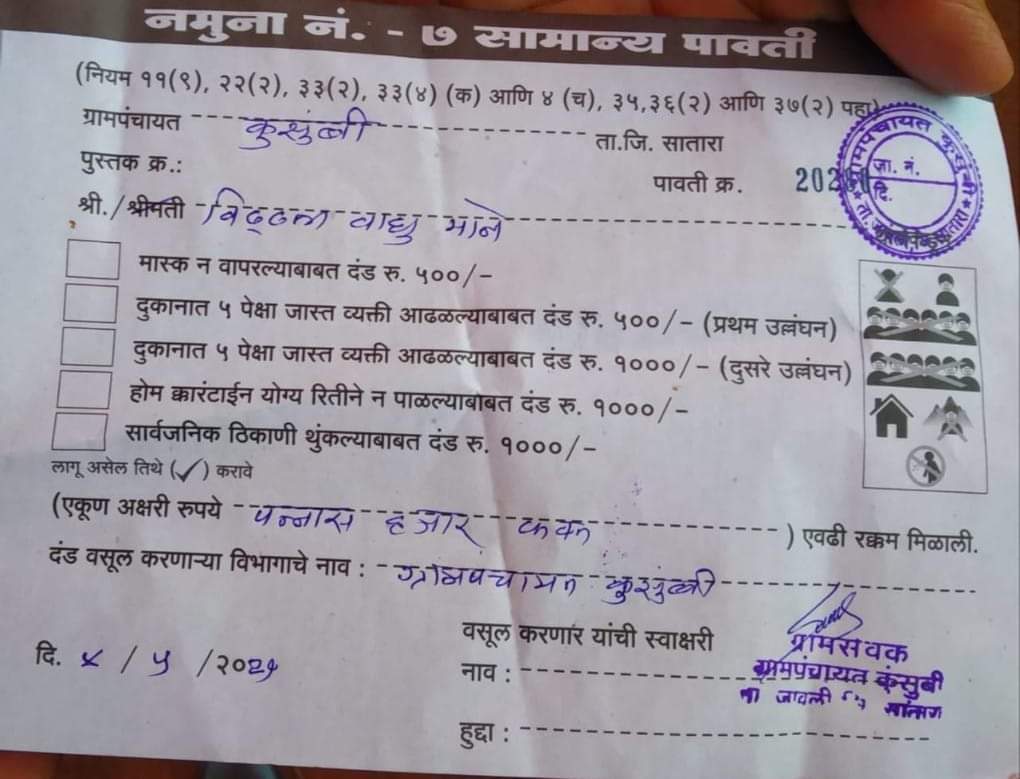 नमुना नं. - ७ सामान्य पावती
(नियम ११(९), २२(२), ३३(२), ३३(४) (क) आणि ४ (च), ३५,३६(२) आणि ३७(२) पहा)
ग्रामपंचायत कुसुंबी ता.जि. सातारा
पुस्तक क्र.:
पावती क्र.
ग्रामपंचायत कुसुंबी
जा. नं.
दि.
श्री./श्रीमती विठ्ठल वाघु माने
मास्क न वापरल्याबाबत दंड रु. ५००/-
दुकानात ५ पेक्षा जास्त व्यक्ती आढळल्याबाबत दंड रु. ५००/- (प्रथम उल्लंघन)
दुकानात ५ पेक्षा जास्त व्यक्ती आढळल्याबाबत दंड रु. १०००/- (दुसरे उल्लंघन)
होम क्वारंटाईन योग्य रितीने न पाळल्याबाबत दंड रु. १०००/-
सार्वजनिक ठिकाणी थुंकल्याबाबत दंड रु. १०००/-
लागू असेल तिथे (✓) करावे
(एकूण अक्षरी रुपये पन्नास हजार ) एवढी रक्कम मिळाली.
दंड वसूल करणाऱ्या विभागाचे नाव : ग्रामपंचायत कुसुंबी
वसूल करणार यांची स्वाक्षरी
ग्रामसेवक
दि. ४ / ५ /२०२१
नाव :
ग्रामपंचायत कुंसुबी
जावली
हुद्दा :